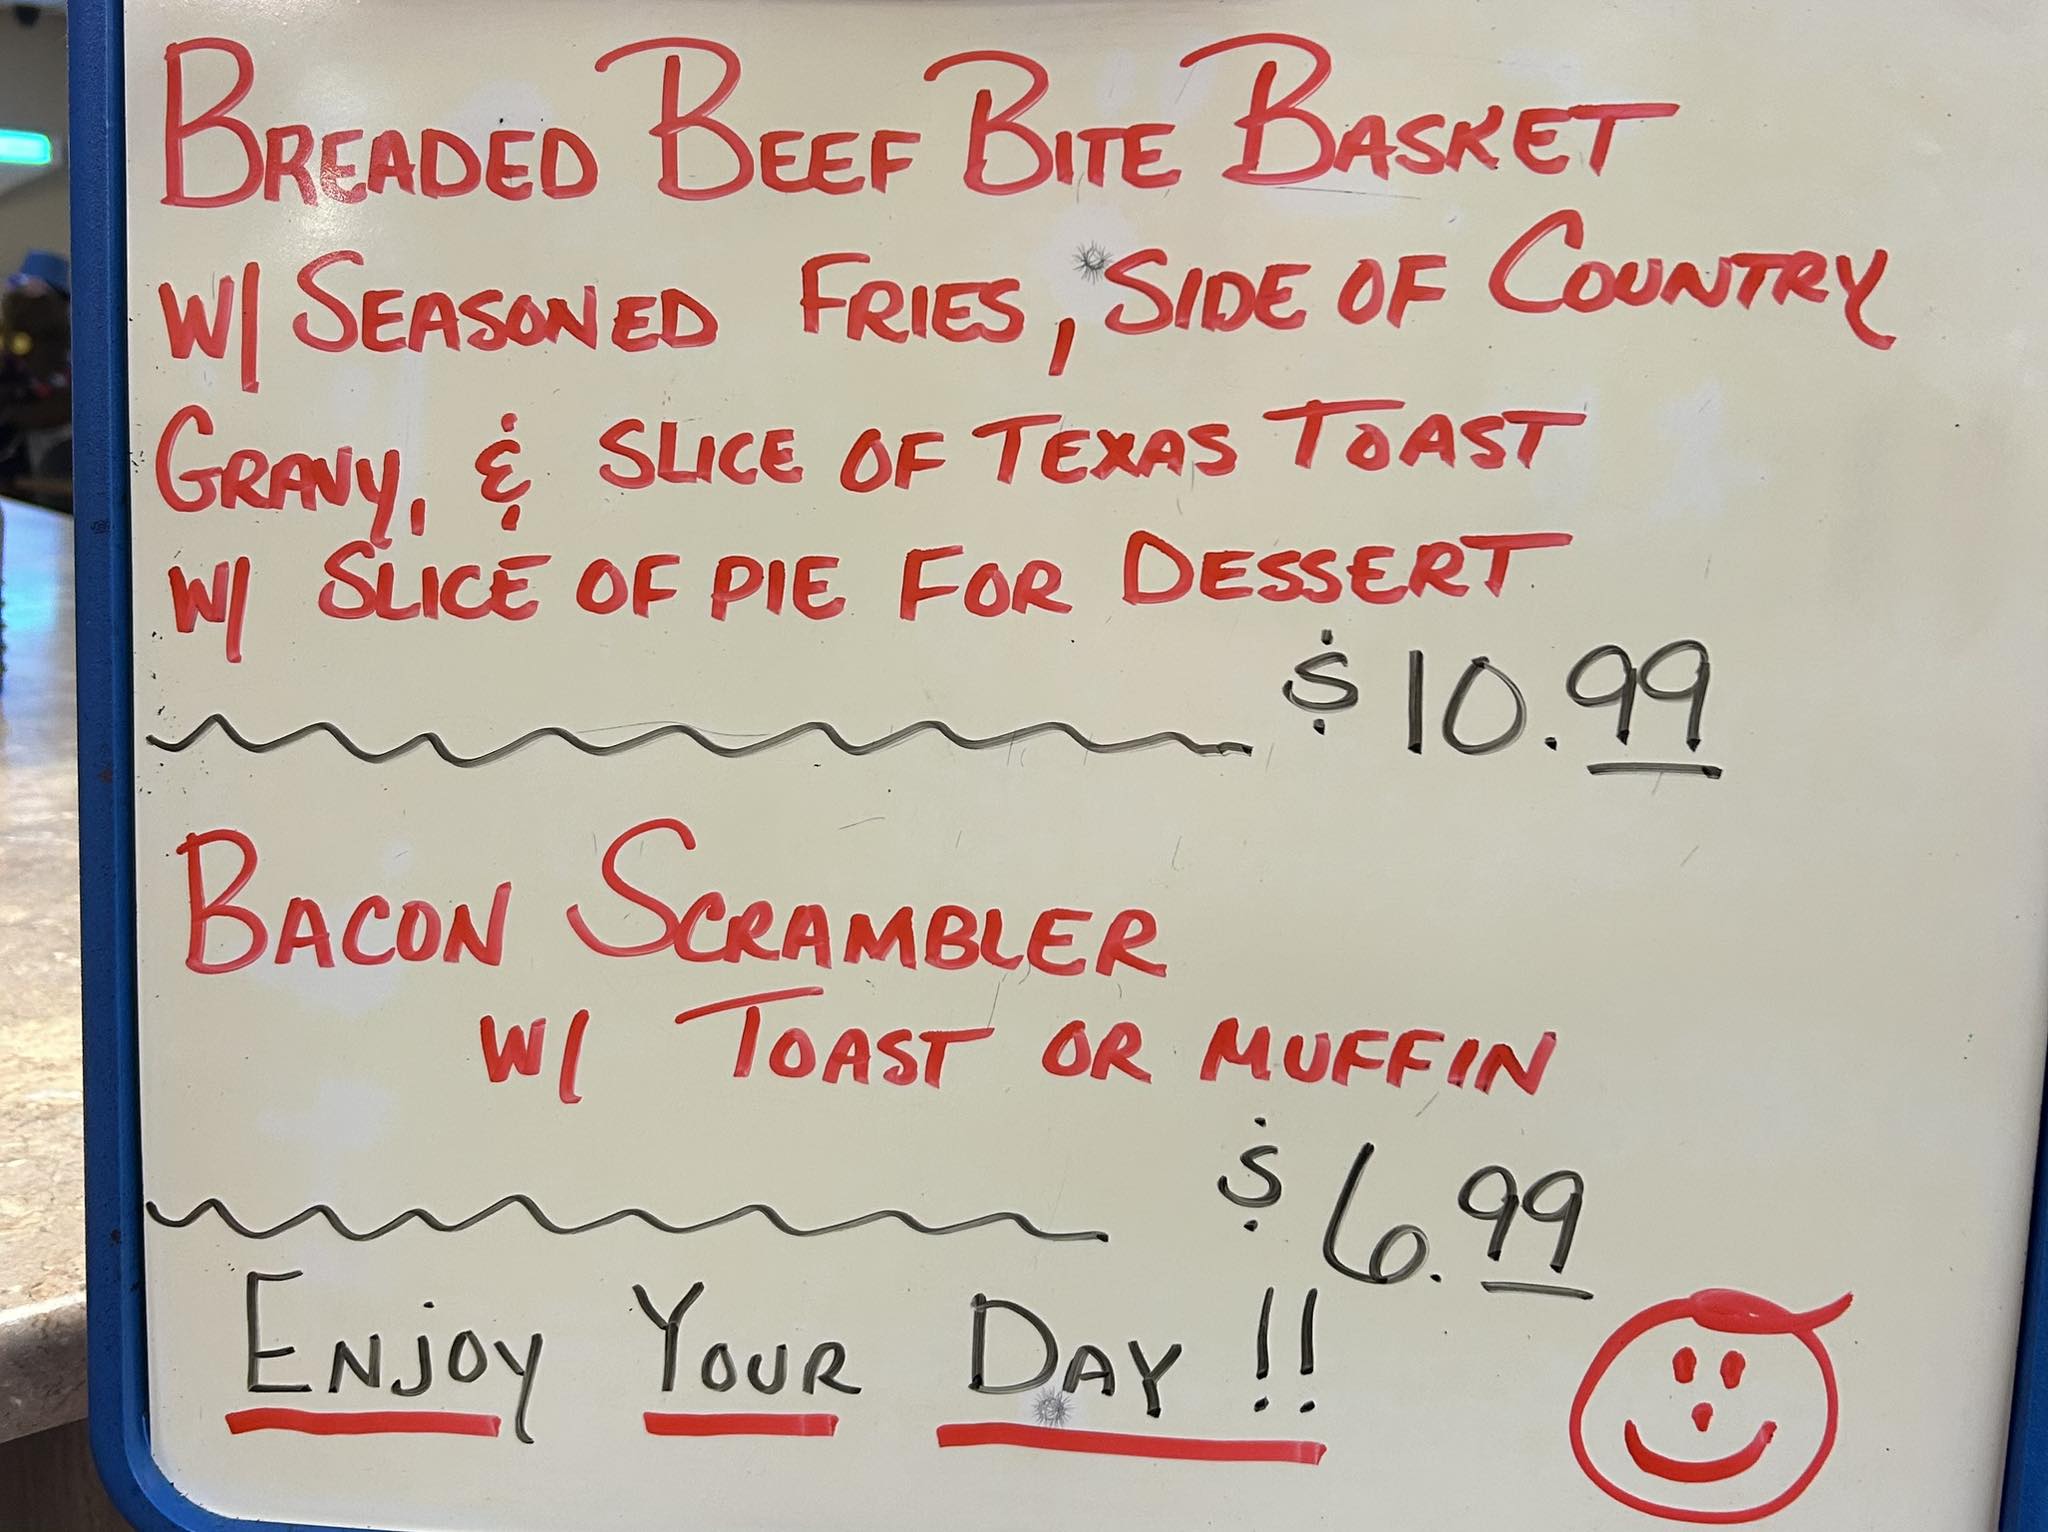 BREADED BEEF BITE BASKET
W/ SEASONED FRIES, SIDE OF COUNTRY
GRAVY, & SLICE OF TEXAS TOAST
W/ SLICE OF PIE FOR DESSERT
$10.99
BACON SCRAMBLER
W/ TOAST OR MUFFIN
$6.99
ENJOY YOUR DAY!!